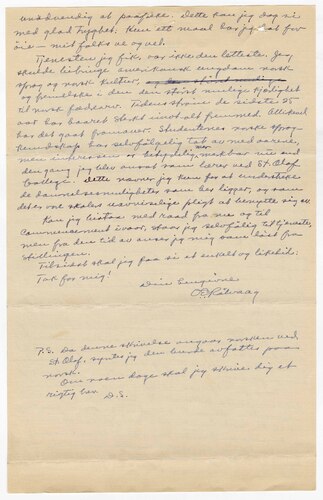 nødvendig at paapeke. Dette kan jeg dog si
med glad Tryghet. Kun ett maal har jeg hat for
øie – mit folks ve og vel.
Tjenesten jeg fik var ikke den letteste. Jeg
skulde bibringe amerikansk ungdom norsk
sprog og norsk kultur,
og fremelske i den den størst mulige kjærlighet
til norsk fædrearv. Tidens strøm de sidste 25
aar har baaret sterkt imot alt fremmed. Allikevel
har det gaat fremover. Studentenes norske sprog-
kundskap har selvfølgelig tat av med aarene,
men interessen er betydelig større nu end
den gang jeg blev ansat som lærer ved St. Olaf
College. Dette nævner jeg kun for at understreke
de dannelsesmuligheter som her ligger, og som
det er vore skolers uavviselige pligt at benytte sig av.
Kan jeg bistaa med raad fra nu og til
Commencement ivaar, staar jeg selvfølgelig til tjeneste,
men fra den tid av anser jeg mig som løst fra
stillingen.
Tilsidst skal jeg faa si et enkelt og likefrit:
Tak for mig!
Din Hengivne
O. E. Rølvaag
P.S. Da denne skrivelse angaar norsken ved
St. Olaf, syntes jeg den burde avfattes paa
norsk.
Om noen dage skal jeg skrive dig et
rigtig brev. D.S.